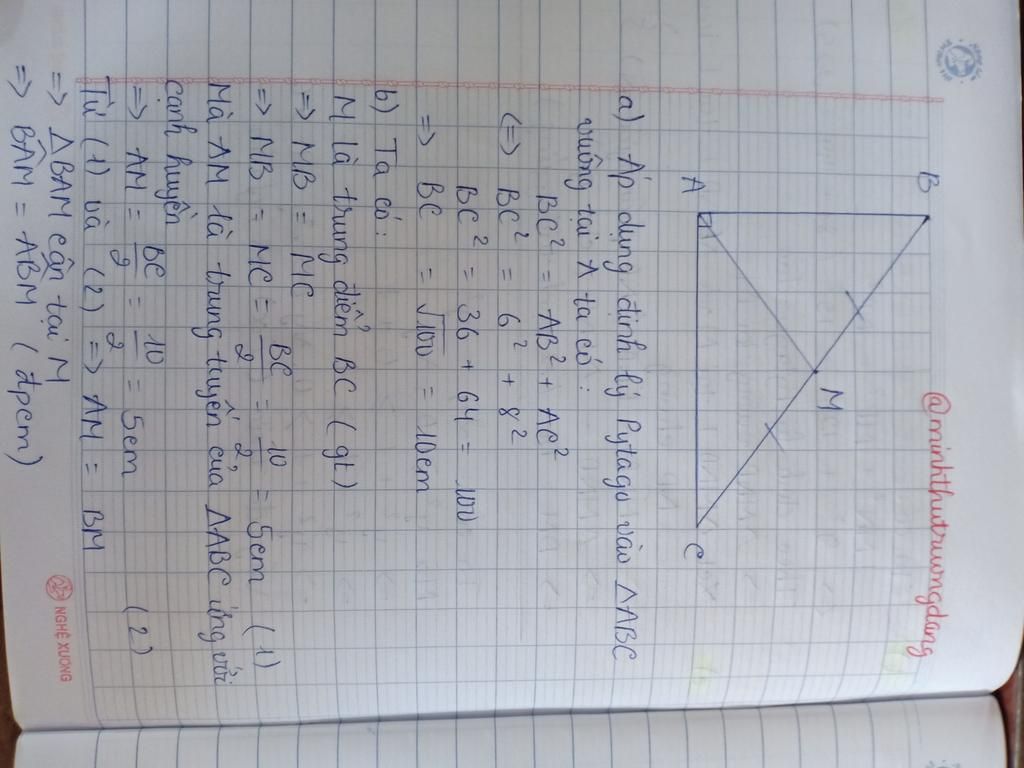 @minhthutruongdang
B
M
A
C
a) Áp dụng định lý Pytago vào ΔABC
vuông tại A ta có:
BC² = AB² + AC²
(=) BC² = 6² + 8²
BC² = 36 + 64 = 100
=> BC = √100 = 10cm
b) Ta có:
M là trung điểm BC (gt)
=> MB = MC
=> MB = MC = BC/2 = 10/2 = 5cm (1)
Mà AM là trung tuyến của ΔABC ứng với
cạnh huyền
=> AM = BC/2 = 10/2 = 5cm (2)
Từ (1) và (2) => AM = BM
=> ΔBAM cân tại M
=> BÂM = ABM (đpcm)
NGHỆ XƯƠNG